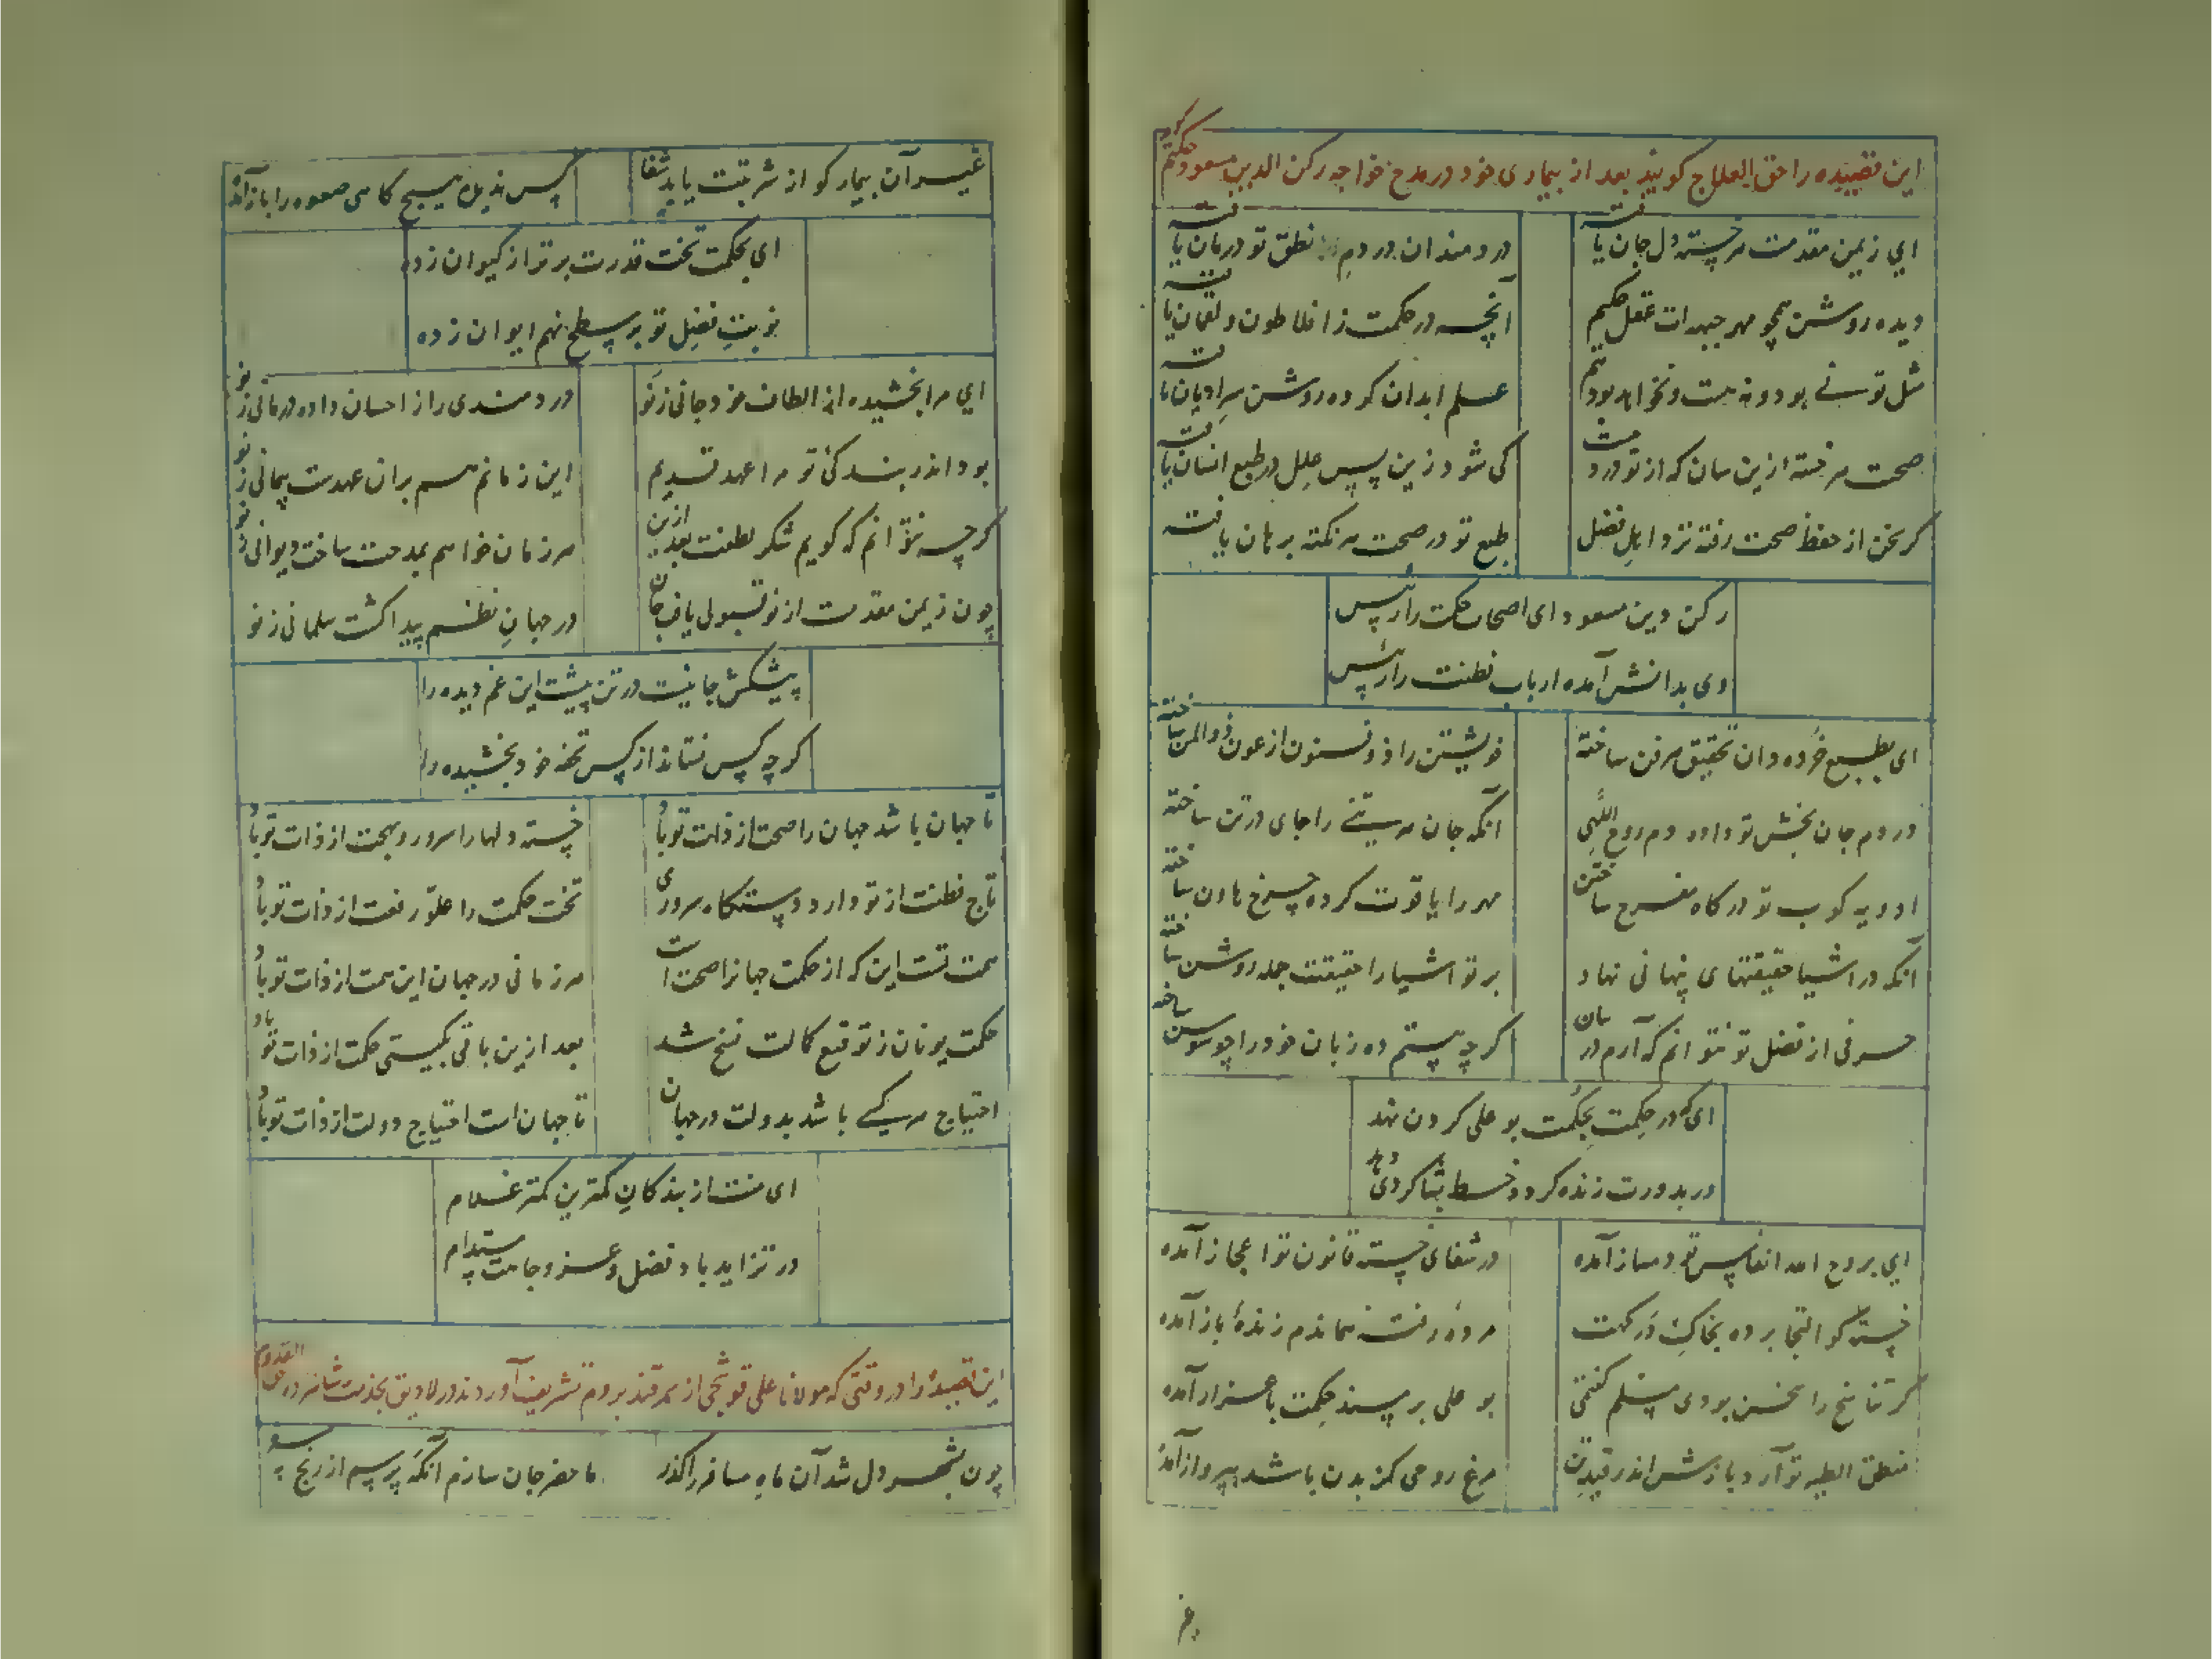 این قصیده را حق العلاج گویند بعد از بیماری خود در مدح خواجه رکن الدین مسعود حکیم گوید
ای ز یمن مقدمت هر خسته دل جان یافته
دردمندان در دم از نطق تو درمان یافته
دیده روشن همچو مهر جبهه‌ات عقل حکیم
آنچه در حکمت ز افلاطون و لقمان یافته
مثل تو نی بود و نه هست و نخواهد بود هم
علم ابدان کرده روشن سر ادیان یافته
صحت هر خسته ازین سان که از تو رو
کی شود زین پس علل در طبع انسان یافته
گر سخن از حفظ صحت رفته نزد اهل فضل
طبع تو در صحت هر نکته برهان یافته
رکن دین مسعود ای اصحاب حکمت را رئیس
وی بدانش آمده ارباب فطنت را رئیس
ای بطبع خرده دان تحقیق هر فن ساخته
خویشتن را ذو فنون از عون ذو المن ساخته
در دم جان بخش تو داده دم روح اللهی
آنکه جان هر تنی را جای در تن ساخته
ادویه کوب تو در گاه مفرح ساختن
مهر را یاقوت کرده چرخ هاون ساخته
آنکه در اشیا حقیقتهای پنهانی نهاد
بر تو اشیا را حقیقت جمله روشن ساخته
حرفی از فضل تو نتوانم که آرم در بیان
گرچه هستم ده زبان خود را چو سوسن ساخته
ای که در حکمت بحکمت بوعلی گردن نهد
در بدورت زنده گردد خط شاگردی دهد
ای بروح الله انفاس تو دمساز آمده
در شفای خسته قانون تو اعجاز آمده
خسته کو التجا برده بخاک درگهت
مرده رفته همانـدم زنده باز آمده
گر تناسخ را سخن بودی مسلم گفتمی
بوعلی بر مسند حکمت باعزاز آمده
منطق الطیر تو آرد بازش اندر قید تن
مرغ روحی کز بدن باشد بپرواز آمده
غیر آن بیمار کو از شربتت یابد شفا
کس ندیده هیچ گاهی صعوه را باز آمده
ای بحکمت تخت قدرت برتر از کیوان زده
نوبت فضل تو بر سطح نهم ایوان زده
ای مرا بخشیده از الطاف خود جانی ز نو
دردمندی را ز احسان داده درمانی ز نو
بود اندر بندگی تو مرا عهد قدیم
این زمانم هم بران عهدست پیمانی ز نو
گرچه نتوانم که گویم شکر لطفت بعد ازین
هر زمان خواهم بمدحت ساخت دیوانی ز نو
چون ز یمن مقدمت از نو قبولی یافت جان
در جهان نظم پیدا گشت سلمانی ز نو
پیشکش جانیست در تن پیشت این غم دیده را
گرچه کس نستاند از کس تحفه خود بخشیده را
تا جهان باشد جهان را صحت از ذات تو باد
خسته دلها را سرور و بهجت از ذات تو باد
تاج فطنت از تو دارد دستگاه سروری
تخت حکمت را علو رفعت از ذات تو باد
همت تست این که از حکمت جهانرا صحت است
هر زمانی در جهان این همت از ذات تو باد
حکمت یونان ز توقیع کمالت نسخ شد
بعد ازین باقی بگیتی حکمت از ذات تو باد
احتیاج هر کسی باشد بدولت در جهان
تا جهان است احتیاج دولت از ذات تو باد
ای منت از بندگان کمترین کمتر غلام
در تزاید باد فضل و عز و جاهت مستدام
این قصیده را در وقتی که مولانا علی قوشچی از سمرقند بروم تشریف آوردند
چون بشهر دل شد آن ماه مسافر را گذر
ما حضر جان سازم آنگه پرسم از رنج سفر